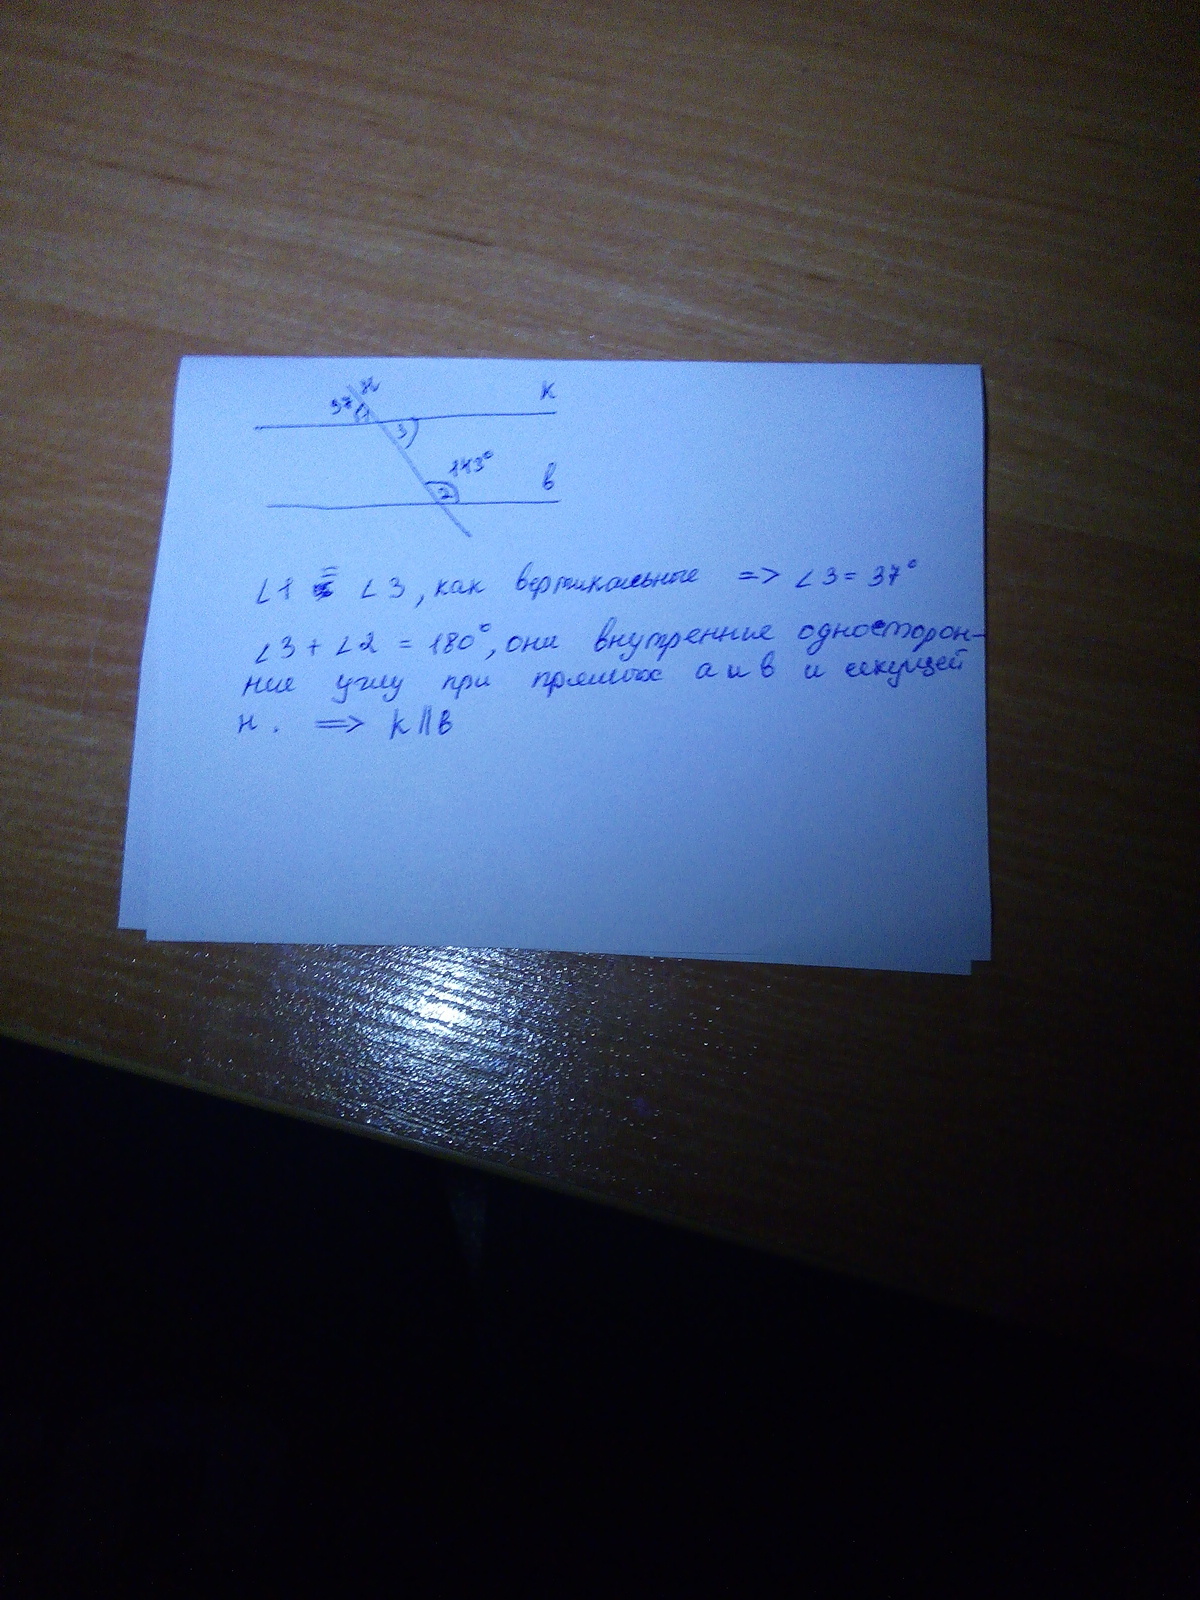 н
37 1
к
3
143°
2
в
∠1 = ∠3, как вертикальные => ∠3 = 37°
∠3 + ∠2 = 180°, они внутренние односторон-
ние углу при прямых а и в и секущей
н. => k || в